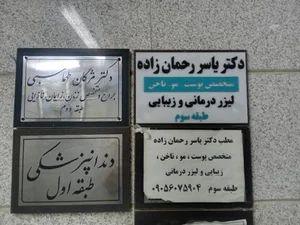 دکتر یاسر رحمان زاده
متخصص پوست . مو . ناخن
لیزر درمانی و زیبایی
طبقه سوم
دکتر مژگان طهماسبی
جراح و متخصص زنان، زایمان و نازایی
طبقه دوم
مطب دکتر یاسر رحمان زاده
متخصص پوست ، مو ، ناخن ،
زیبایی و لیزر درمانی
طبقه سوم ۰۹۰۵۶۰۷۵۹۰۴
دندانپزشکی
طبقه اول